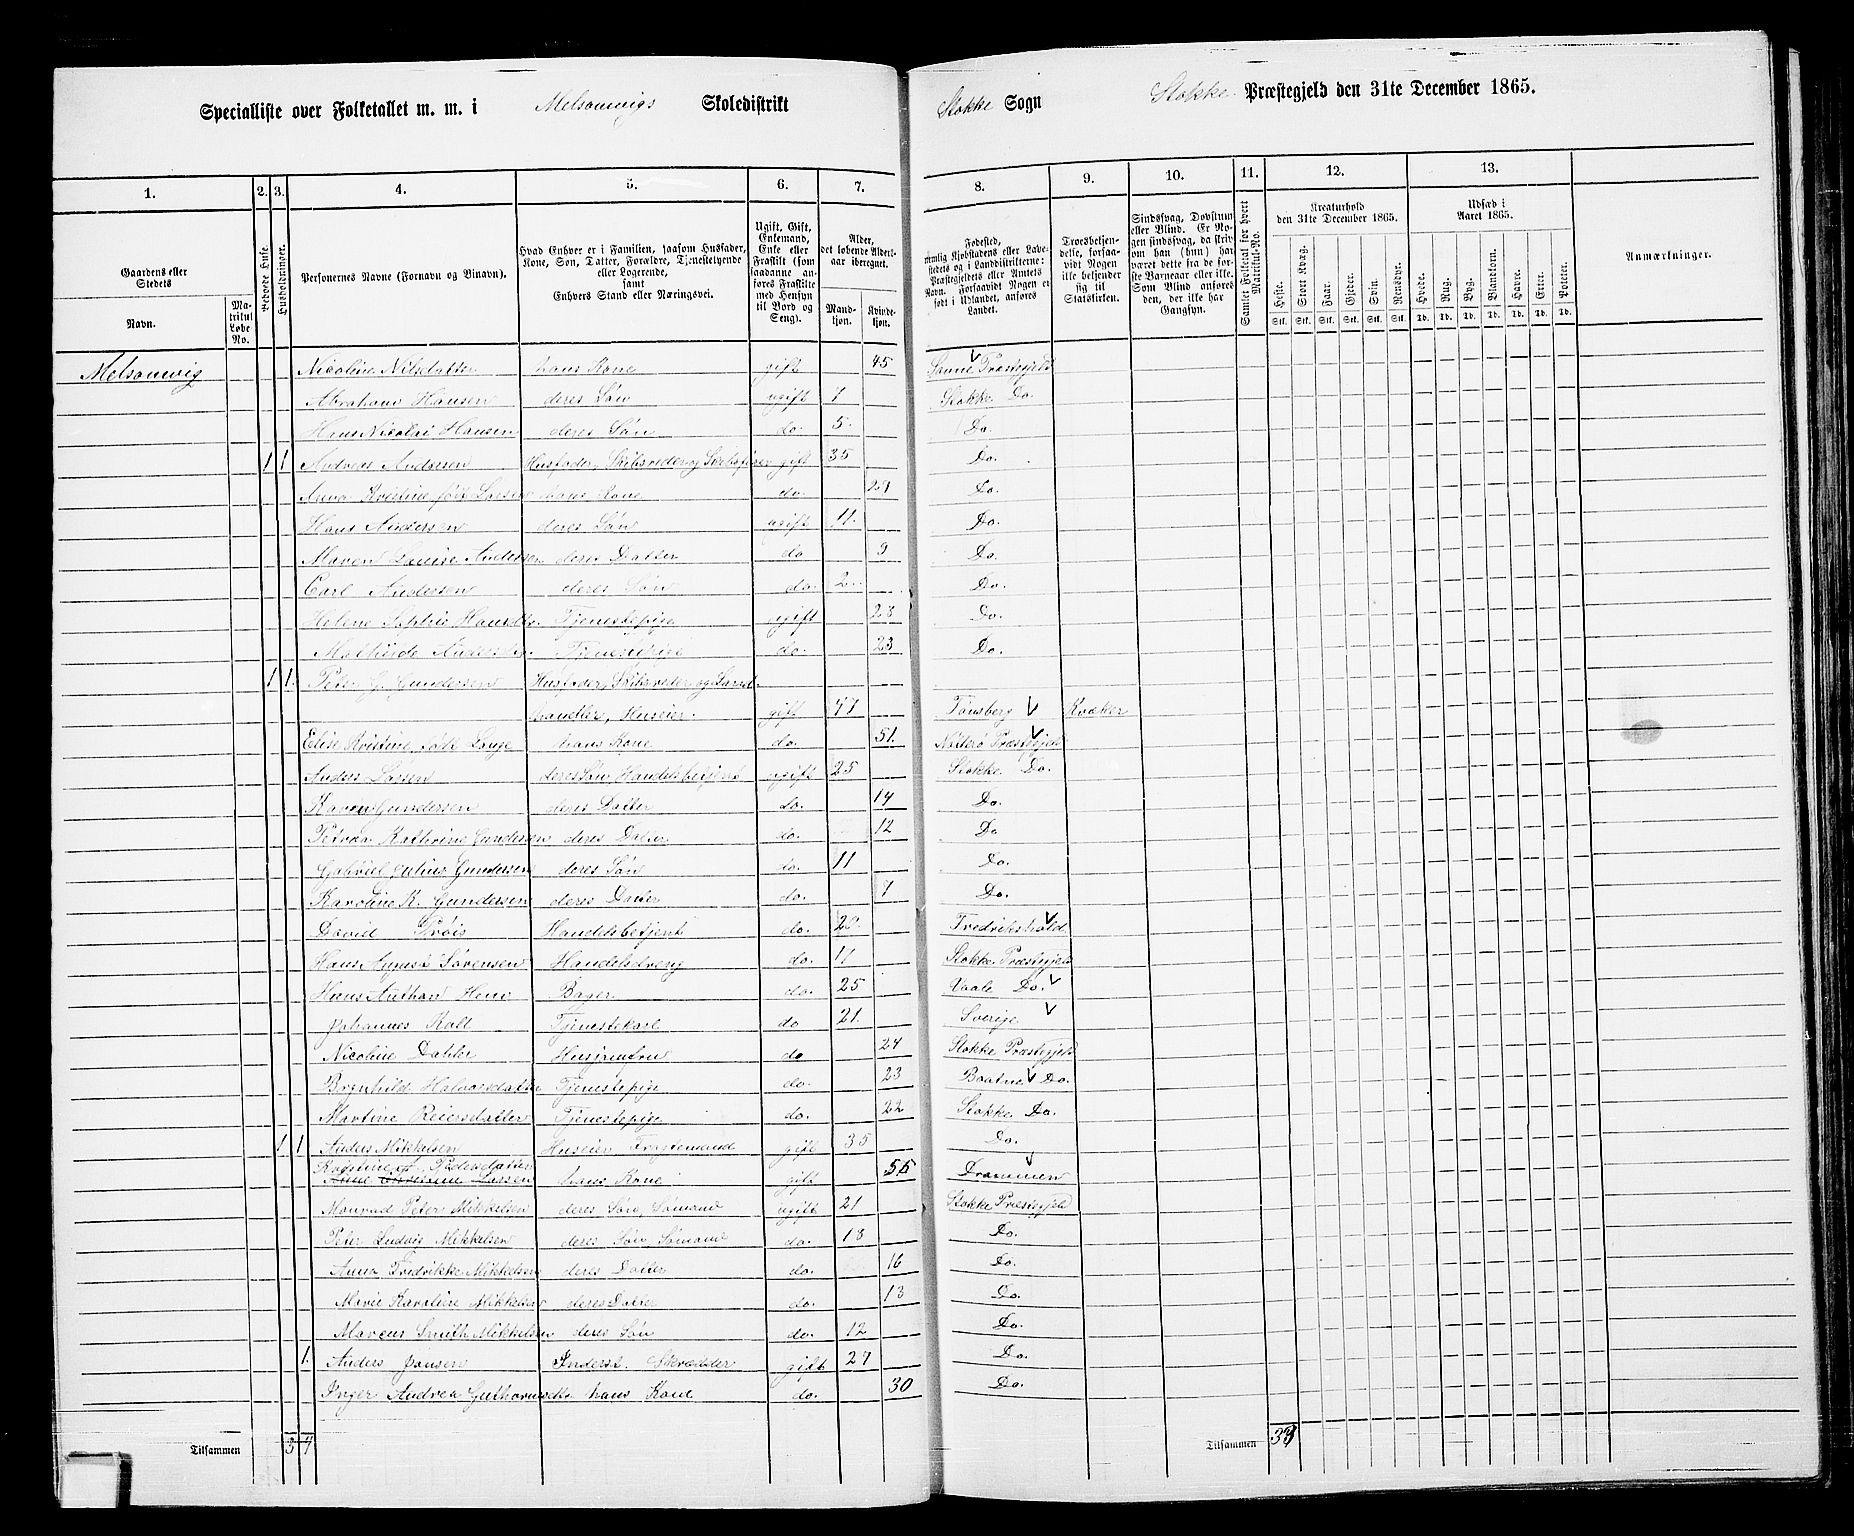 Specialliste over Folketallet m. m. i Melsomvigs Skoledistrikt Stokke Sogn Stokke Præstegjeld den 31te December 1865.
1. 2. 3. 4. 5. 6. 7. 8. 9. 10. 11. 12. 13.
Gaardens eller Stedets Navn.
Matrikul Løbe-No.
Beboede Huse.
Husholdninger.
Personernes Navne (Fornavn og Binavn).
Hvad Enhver er i Familien, saasom Husfader, Kone, Søn, Datter, Forældre, Tjenestetyende eller Logerende, samt Enhvers Stand eller Næringsvei.
Ugift, Gift, Enkemand, Enke eller Fraskilt (som saadanne anføres Fraskilte med Hensyn til Bord og Seng).
Alder, det løbende Aldersaar iberegnet.
Mandkjøn. Kvindekjøn.
Fødested, nemlig Kjøbstadens eller Ladestedets og i Landdistrikterne: Præstegjeldets eller Amtets Navn. Forsaavidt Nogen er født i Udlandet, anføres Landet.
Troesbekjendelse, forsaavidt Nogen ikke bekjender sig til Statskirken.
Sindssvag, Døvstum eller Blind. Er Nogen sindssvag, da skrives om han (hun) har været dette fra de første Barneaar eller ikke. Som Blind anføres den, der ikke har Gangsyn.
Samlet Folketal for hvert Matrikul-No.
Kreaturhold den 31te December 1865.
Heste. Stort Kvæg. Faar. Gjeder. Svin. Rensdyr.
Stk. Stk. Stk. Stk. Stk. Stk.
Udsæd i Aaret 1865.
Hvede. Rug. Byg. Blandkorn. Havre. Erter. Poteter.
Td. Td. Td. Td. Td. Td. Td.
Anmærkninger.
Melsomvig Nicoline Nilsdatter hans Kone gift 45 Præstegjeld
Abraham Hansen deres Søn ugift 7 Stokke Do.
Hans Nicolai Hansen deres Søn do. 5. Do.
1 1 Andreas Andersen Husfader, Skibsreder og Skibsfører gift 35 Do.
Kristine født Larsen hans Kone do. 29 Do.
Hans Andersen deres Søn ugift 11. Do.
Maren Louise Andersen deres Datter do 9 Do.
Carl Andersen deres Søn do. 2. Do.
Helene Sophie Hansdtr. Tjenestepige ugift 23 Do.
Mathilde Tjenestepige do. 23 Do.
1 1. Peter G. Gundersen Husfader, Skibsreder og
handler, Huseier. gift 47 Tønsberg Kvæker
Elise Kristine født Lange hans Kone do. 51. Nøtterø Præstegjeld
Anders Larsen deres Søn, Handelsbetjent ugift 25 Stokke Do.
Karen Gundersen deres Datter do. 14 Do.
Petrea Kathrine Gundersen deres Datter do. 12 Do
Gabriel Julius Gundersen deres Søn do. 11 Do.
Karoline K. Gundersen deres Datter do. 7 Do.
David Handelsbetjent do. 20 Fredrikshald
Hans August Sørensen Handelsdreng do. 11 Stokke Præstegjeld
Hans Anthon Bager do. 25 Vaale Do.
Johannes Tjenestekarl do 21. Sverige
Nicoline Dahler Husjomfru do 24 Stokke Præstegjeld
Brynhild Halvorsdatter Tjenestepige do. 23 Do.
Martine Reiersdatter Tjenestepige do. 22 Stokke Do.
1 1 Anders Mikkelsen Huseier gift 35 Do.
Pedersdatter
Anne Larsen hans Kone gift 55 Drammen
Konrad Peter Mikkelsen deres Søn, Sømand ugift 21 Stokke Præstegjeld
Peter Ludvig Mikkelsen deres Søn Sømand do. 18 Do.
Anna Fredrikke Mikkelsen deres Datter do. 16 Do.
Marie Karoline Mikkelsen deres Datter do. 13 Do.
Marcus Smith Mikkelsen deres Søn do. 12 Do.
1. Anders Jansen Inderst. Skrædder gift 27 Do.
Inger Andrea hans Kone do. 30 Do.
Tilsammen 3 4 Tilsammen 33